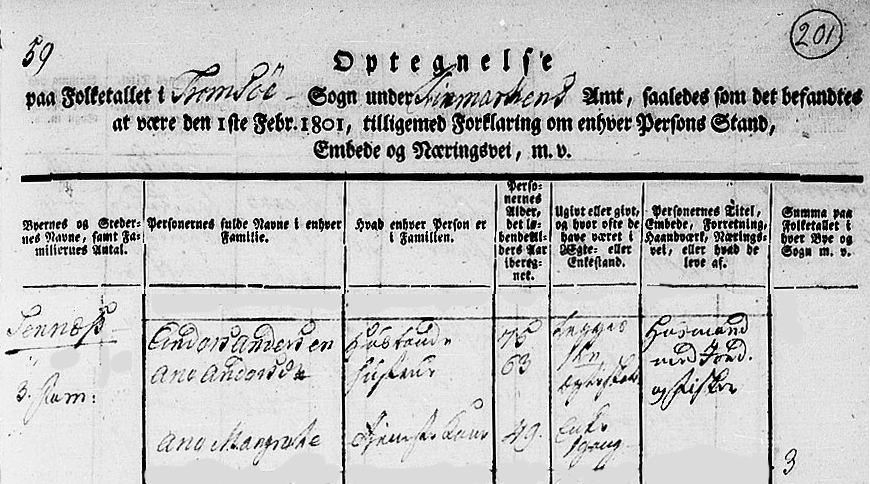 59
201
Optegnelse
paa Folketallet i Tromsöe Sogn under Finmarkens Amt, saaledes som det befandtes
at være den 1ste Febr. 1801, tilligemed Forklaring om enhver Persons Stand,
Embede og Næringsvei, m. v.
Byernes og Steder-
nes Navne, samt Fa-
miliernes Antal.
Personernes fulde Navne i enhver
Familie.
Hvad enhver Person er
i Familien.
Perso-
nernes
Alder,
det lø-
bende Al-
ders Aar
ibereg-
net.
Ugivt eller givt,
og hvor ofte de
have været i
Ægte- eller
Enkestand.
Personernes Titel,
Embede, Forretning,
Haandværk, Nærings-
vei, eller hvad de
leve af.
Summa paa
Folketallet i
hver Bye og
Sogn m. v.
Tennæss
3. Fam:
Anders Andersen Hosbonde 75 Begges Huusmand
Ane Andersd. Hustrue 63 med Jord.
og fisker
Ane Margrethe Kone 49. Enke
gang
3